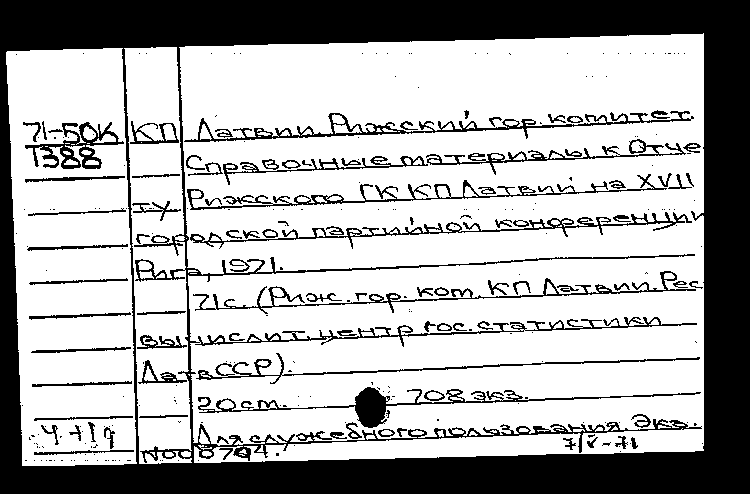 71-50К КП Латвии. Рижский гор. комитет.
1388 Справочные материалы к Отче
ту Рижского ГК КП Латвии на XVII
городской партийной конференции
Рига, 1971.
71с. (Риж. гор. ком. КП Латвии. Рес
вычислит. центр гос. статистики
Латв ССР).
20 см. 708 экз.
Для служебного пользования. Экз.
7/X-71